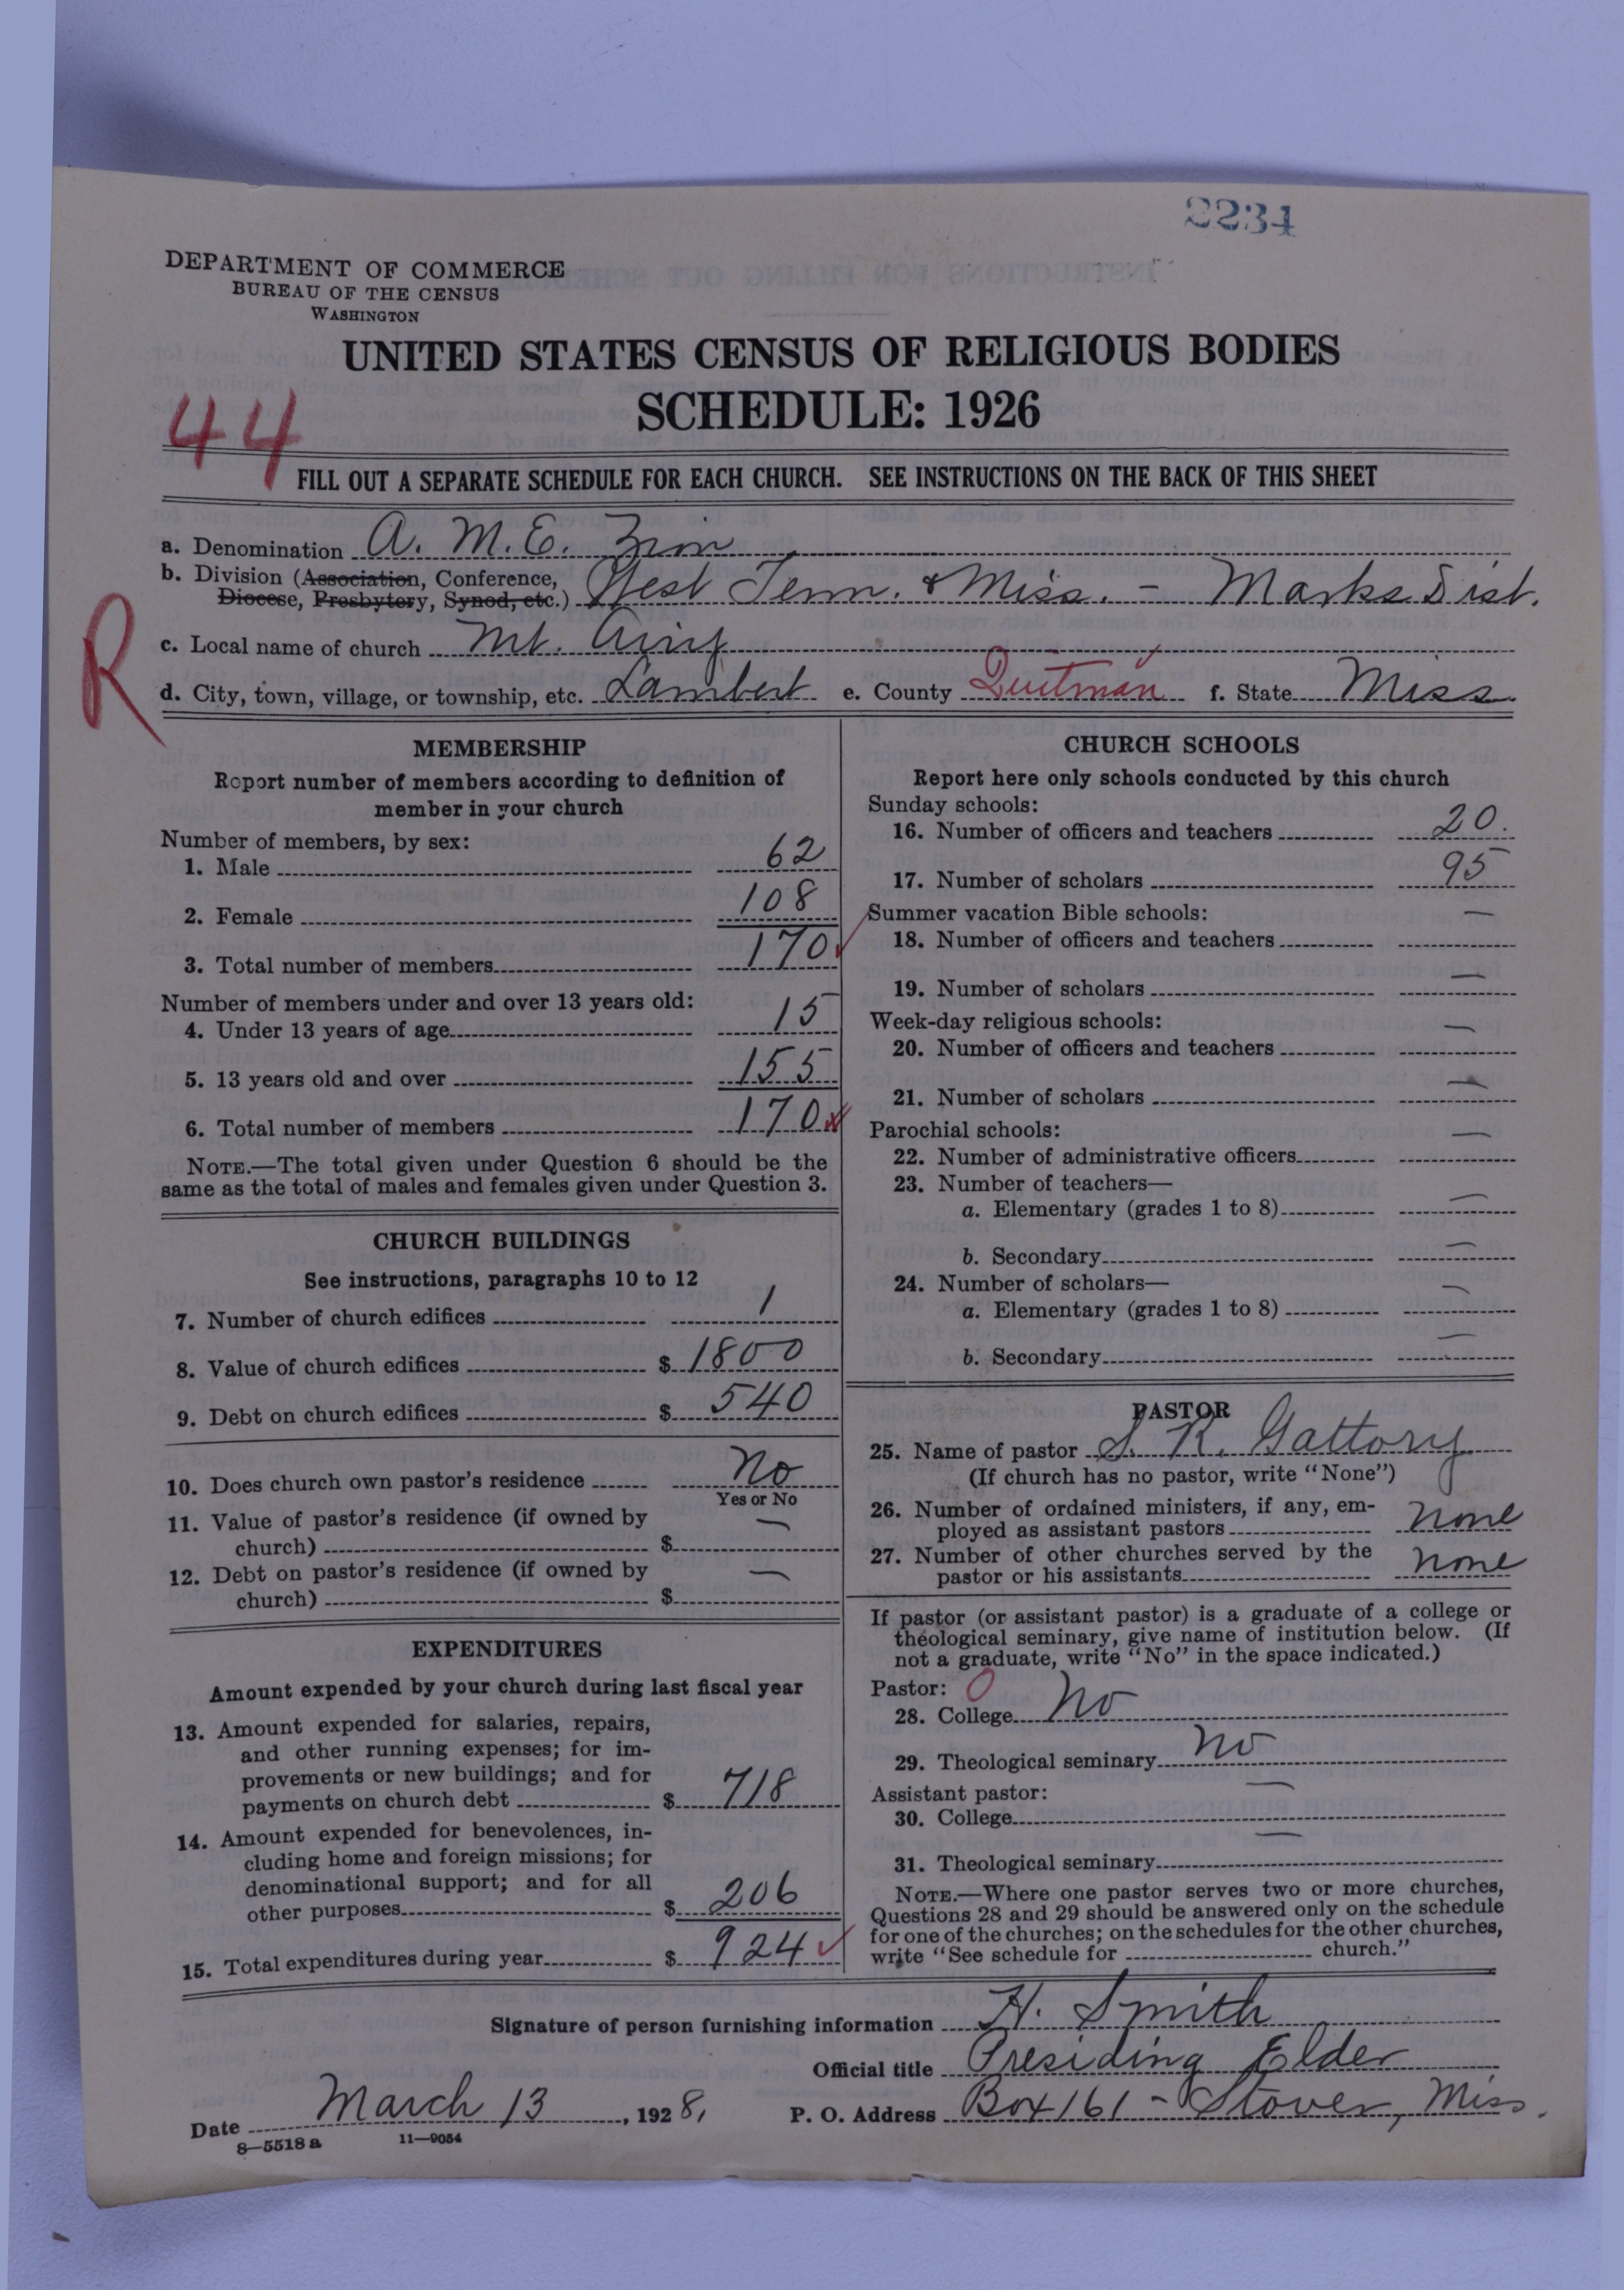 2234
DEPARTMENT OF COMMERCE
BUREAU OF THE CENSUS
WASHINGTON
UNITED STATES CENSUS OF RELIGIOUS BODIES
SCHEDULE: 1926
44
FILL OUT A SEPARATE SCHEDULE FOR EACH CHURCH. SEE INSTRUCTIONS ON THE BACK OF THIS SHEET
a. Denomination A. M. E. Zion
b. Division (Association, Conference, Diocese, Presbytery, Synod, etc.) West Tenn. & Miss. - Marks Dist.
R
c. Local name of church Mt. Airy
d. City, town, village, or township, etc. Lambert e. County Quitman f. State Miss.
MEMBERSHIP
Report number of members according to definition of
member in your church
Number of members, by sex:
1. Male 62
2. Female 108
3. Total number of members 170
Number of members under and over 13 years old:
4. Under 13 years of age 15
5. 13 years old and over 155
6. Total number of members 170
NOTE.—The total given under Question 6 should be the
same as the total of males and females given under Question 3.
CHURCH BUILDINGS
See instructions, paragraphs 10 to 12
7. Number of church edifices 1
8. Value of church edifices $ 1800
9. Debt on church edifices $ 540
10. Does church own pastor's residence No
Yes or No
11. Value of pastor's residence (if owned by
church) $ —
12. Debt on pastor's residence (if owned by
church) $ —
EXPENDITURES
Amount expended by your church during last fiscal year
13. Amount expended for salaries, repairs,
and other running expenses; for im-
provements or new buildings; and for
payments on church debt $ 718
14. Amount expended for benevolences, in-
cluding home and foreign missions; for
denominational support; and for all
other purposes $ 206
15. Total expenditures during year $ 924
CHURCH SCHOOLS
Report here only schools conducted by this church
Sunday schools:
16. Number of officers and teachers 20.
17. Number of scholars 95
Summer vacation Bible schools:
18. Number of officers and teachers —
19. Number of scholars —
Week-day religious schools:
20. Number of officers and teachers —
21. Number of scholars —
Parochial schools:
22. Number of administrative officers —
23. Number of teachers—
a. Elementary (grades 1 to 8) —
b. Secondary —
24. Number of scholars—
a. Elementary (grades 1 to 8) —
b. Secondary —
PASTOR
25. Name of pastor S. R. Gattory
(If church has no pastor, write "None")
26. Number of ordained ministers, if any, em-
ployed as assistant pastors none
27. Number of other churches served by the
pastor or his assistants none
If pastor (or assistant pastor) is a graduate of a college or
theological seminary, give name of institution below. (If
not a graduate, write "No" in the space indicated.)
Pastor: 0
28. College No
29. Theological seminary No
Assistant pastor:
30. College —
31. Theological seminary —
NOTE.—Where one pastor serves two or more churches,
Questions 28 and 29 should be answered only on the schedule
for one of the churches; on the schedules for the other churches,
write "See schedule for church."
Signature of person furnishing information H. Smith
Official title Presiding Elder
Date March 13, 1928, P. O. Address Box 161 - Stover, Miss.
8—5518 a 11—9054